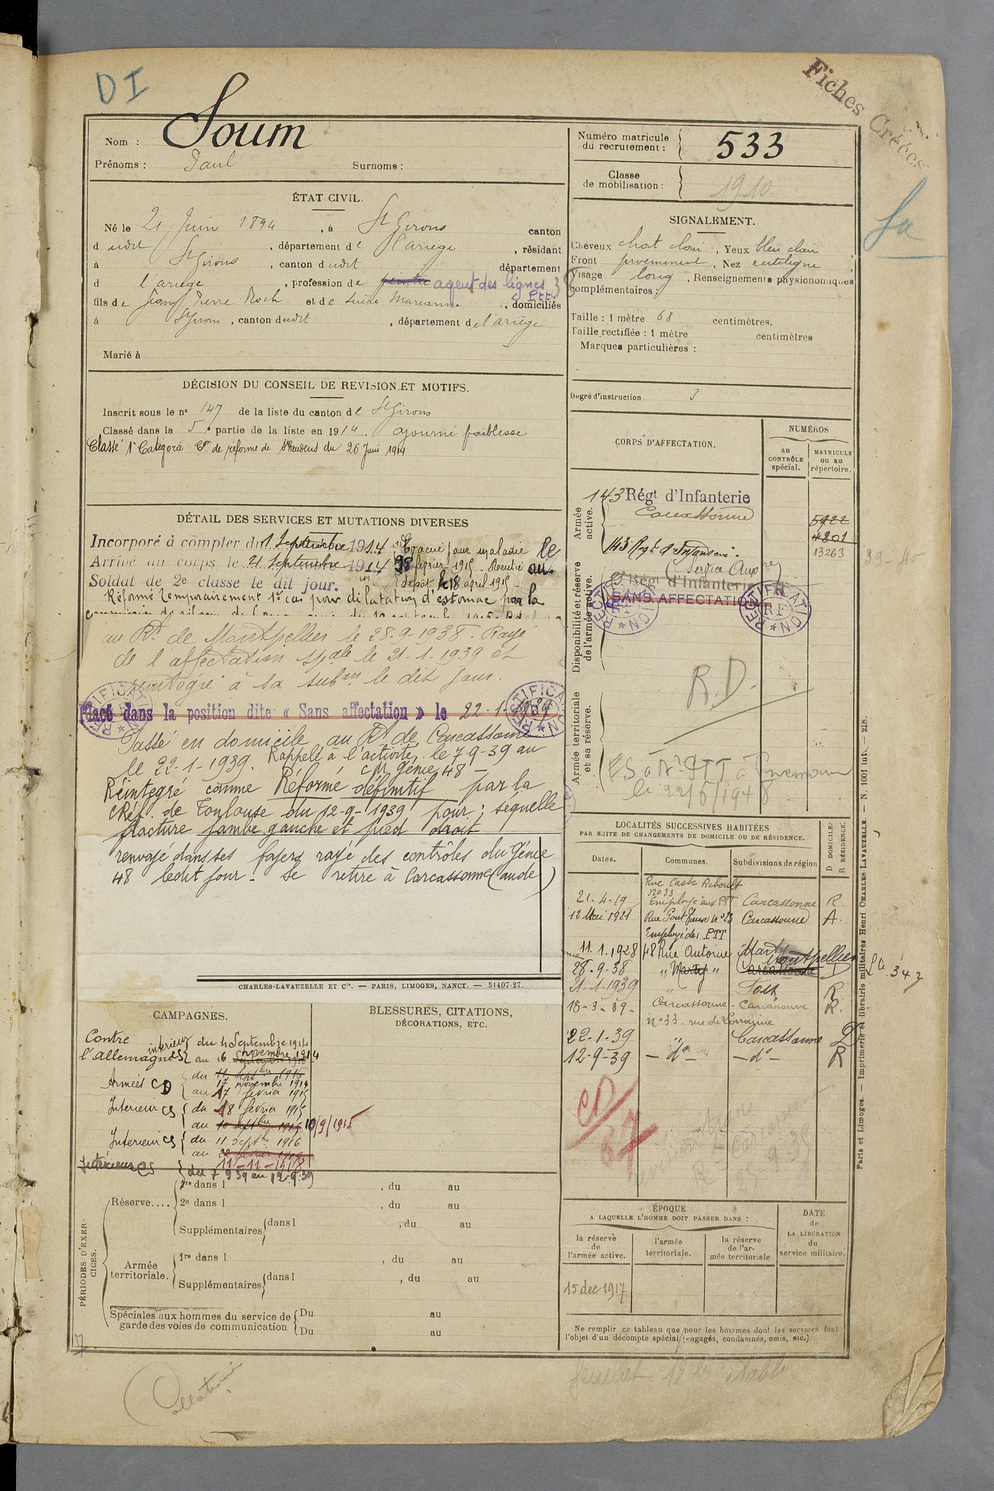 DI
Fiches Créées
Nom : Soum
Prénoms : Paul Surnoms :
Numéro matricule du recrutement : 533
Classe de mobilisation : 1910
ÉTAT CIVIL.
Né le 21 Juin 1894, à St Girons canton
d udit St Girons, département de l'ariège, résidant
à St Girons, canton dudit département
d l'ariège, profession de peintre agent des lignes PTT
fils de Jean Pierre Roch et de Marianne, domiciliés
à St Girons, canton dudit, département de l'ariège
Marié à
SIGNALEMENT.
Cheveux chat clair, Yeux bleu clair
Front proeminent, Nez rectiligne
Visage long, Renseignements physionomiques
complémentaires :
Taille : 1 mètre 68 centimètres.
Taille rectifiée : 1 mètre centimètres
Marques particulières :
Degré d'instruction 3
DÉCISION DU CONSEIL DE REVISION ET MOTIFS.
Inscrit sous le no 147 de la liste du canton de St Girons
Classé dans la 5e partie de la liste en 1914. ajourné faiblesse
Classé 1e Categorie Con de réforme de du 26 juin 1914
DÉTAIL DES SERVICES ET MUTATIONS DIVERSES
Incorporé à compter du 1 Septembre 1914. Evacué pour maladie le
Arrivé au corps le 21 Septembre 1914 18 février 1915. au
Soldat de 2e classe le dit jour. dépôt le 18 april 1915.
Réformé Temporairement 1e cat pour dilatation d'estomac par la
au Rt de Montpellier le 28.9.1938. Rayé
de l'affectation spale le 21.1.1939 et
reintégré à sa subon le dit jour.
Placé dans la position dite « Sans affectation » le 22-1-1939
RECTIFICATION
RECTIFICATION
Passé en domicile au Rt de Carcassonne
le 22-1-1939. Rappelé à l'activité le 7-9-39 au
CM génie 48
Réintégré comme Réformé définitif par la
CRéf. de Toulouse du 12-9-1939 pour : séquelle
fracture jambe gauche et pied droit
renvoyé dans ses foyers rayé des contrôles du Génie
48 ledit jour - se retire à Carcassonne (aude)
CHARLES-LAVAUZELLE ET Cie. — PARIS, LIMOGES, NANCY. — 31407-27.
CORPS D'AFFECTATION.
NUMÉROS
AU CONTRÔLE spécial.
MATRICULE OU AU répertoire.
Armée active.
143 Régt d'Infanterie
Carcassonne
143 Regt d'Infanterie
(Service Auxre)
5922
4201
13263
39-40
Disponibilité et réserve de l'armée active.
Régt d'Infanterie
SANS AFFECTATION
RECTIFICATION RF
RECTIFICATION RF
R.D.
Armée territoriale et sa réserve.
le 22/6/1948
LOCALITÉS SUCCESSIVES HABITÉES
PAR SUITE DE CHANGEMENTS DE DOMICILE OU DE RÉSIDENCE.
Dates. Communes. Subdivisions de région D DOMICILE. R RÉSIDENCE.
21-4-19 Rue Coste Reboulh no 33 Employé aux PTT Carcassonne R.
12 Mai 1921 Rue Pont no 23 Employé des PTT Carcassonne A.
11.1.1928 48 Rue Antoine Marty Montpellier
28-9-38 " Marty " Carcassonne D
21-1-1939 R
18-3-39- Carcassonne Carcassonne R.
no 33. rue de Lorraine
22-1-39 " Carcassonne D
12-9-39 — do — — do — R
CD
67
CAMPAGNES.
Contre l'allemagne
intérieur CS du 4 Septembre 1914
au 16 novembre 1914
Armées CD du 17 novembre 1914
au 17 février 1915
Intérieur CS du 18 février 1915
au 10 Septbre 1915 10/9/1915
Intérieur CS du 11 Septbre 1916
au 11-11-1918
Intérieur CS du 7 9 39 au 12-9-39
BLESSURES, CITATIONS,
DÉCORATIONS, ETC.
PÉRIODES D'EXERCICES.
Réserve.... 1re dans l , du au
2e dans l , du au
Supplémentaires dans l , du au
Armée territoriale. 1re dans l , du au
Supplémentaires dans l , du au
Spéciales aux hommes du service de garde des voies de communication Du au
Du au
ÉPOQUE
A LAQUELLE L'HOMME DOIT PASSER DANS :
la réserve de l'armée active.
l'armée territoriale.
la réserve de l'armée territoriale
DATE de LA LIBÉRATION du service militaire.
15 dec 1917
Ne remplir ce tableau que pour les hommes dont les services font
l'objet d'un décompte spécial (engagés, condamnés, omis, etc.)
Paris et Limoges. — Imprimerie et librairie militaires Henri CHARLES-LAVAUZELLE. — N. 1001 lut. — 228.
Collationné